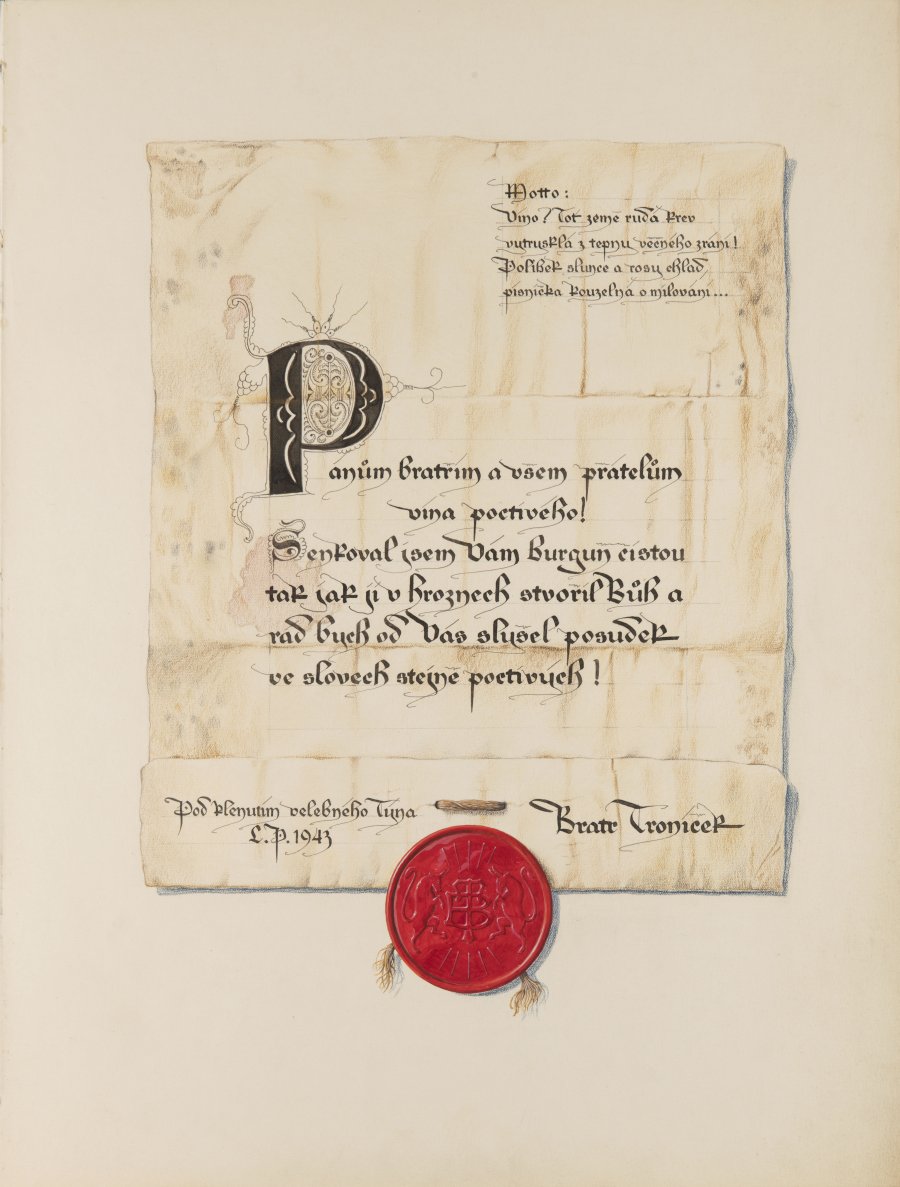 Motto:
Víno? Toť země rudá krev
vytrysklá z tepnu věčného zrání!
Polibek slunce a rosy chlad
písnička kouzelná o milování...
Pánům bratřím a všem přátelům
vína poctivého!
Šenkoval jsem Vám Burguň čistou
tak jak ji v hroznech stvořil Bůh a
rád bych od Vás slyšel posudek
ve slovech stejně poctivých!
Pod klenutím velebného Týna
L.P. 1943
Bratr Troníček